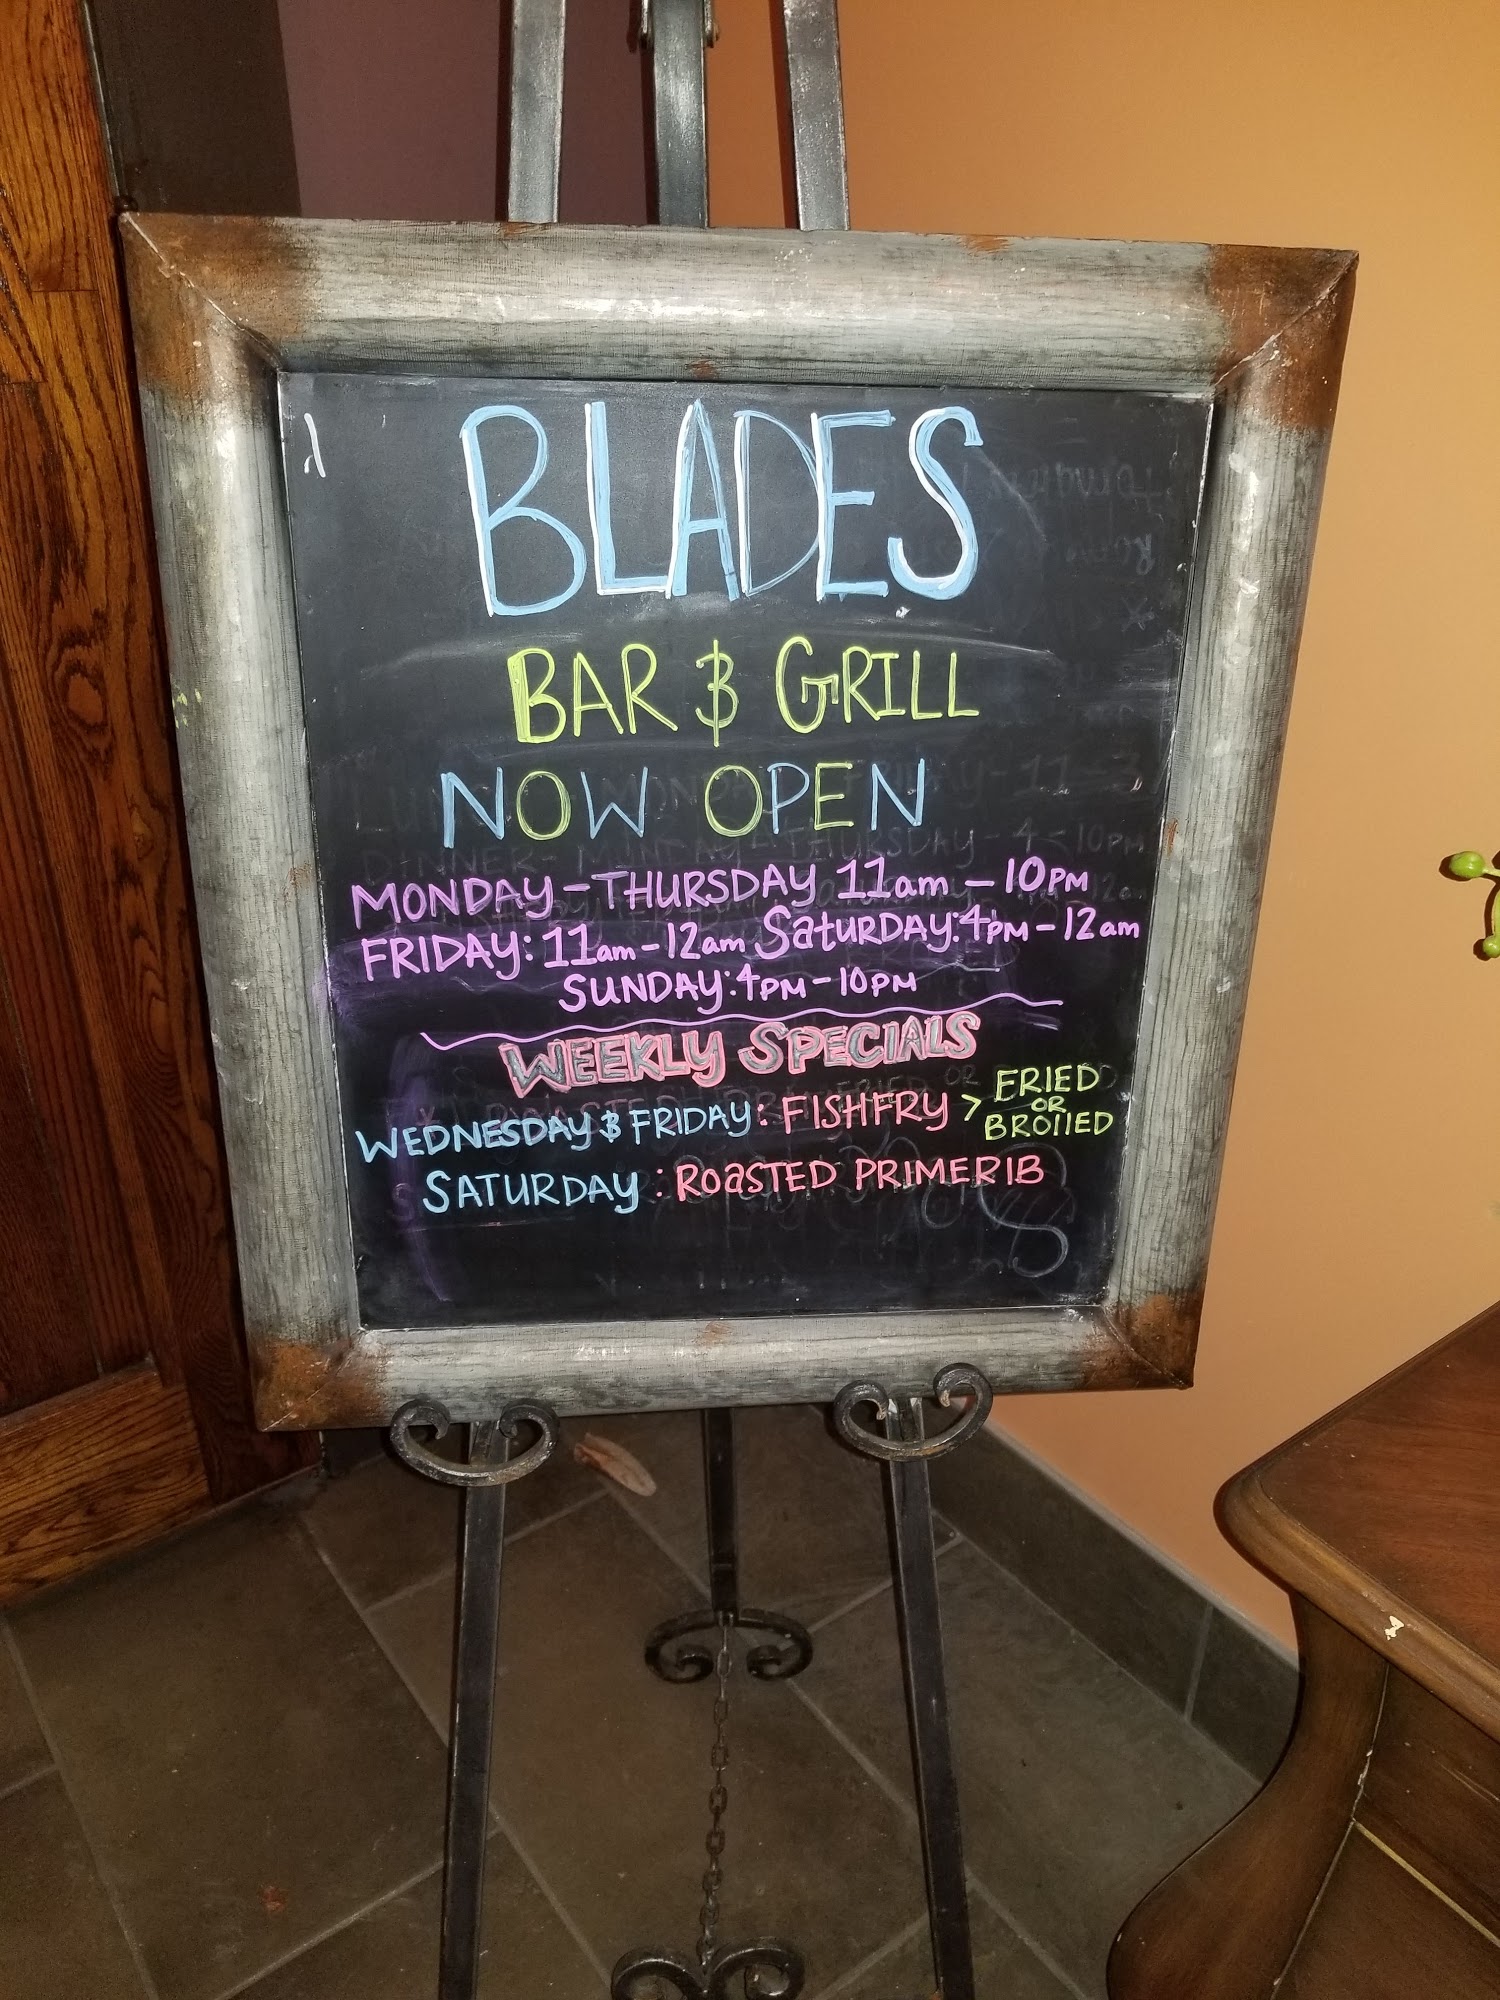 BLADES
BAR & GRILL
NOW OPEN
MONDAY - THURSDAY 11am - 10PM
FRIDAY: 11am - 12am SaTURDAY: 4PM - 12am
SUNDAY: 4PM - 10PM
WEEKLY SPECIALS
WEDNESDAY & FRIDAY: FISHFRY > FRIED OR BROILED
SATURDAY: ROaSTED PRIMERIB